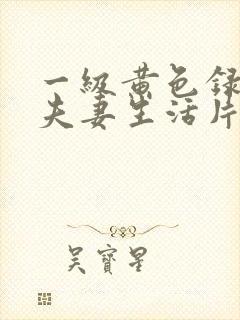 一级黄色录
夫妻生活片
吴寶星